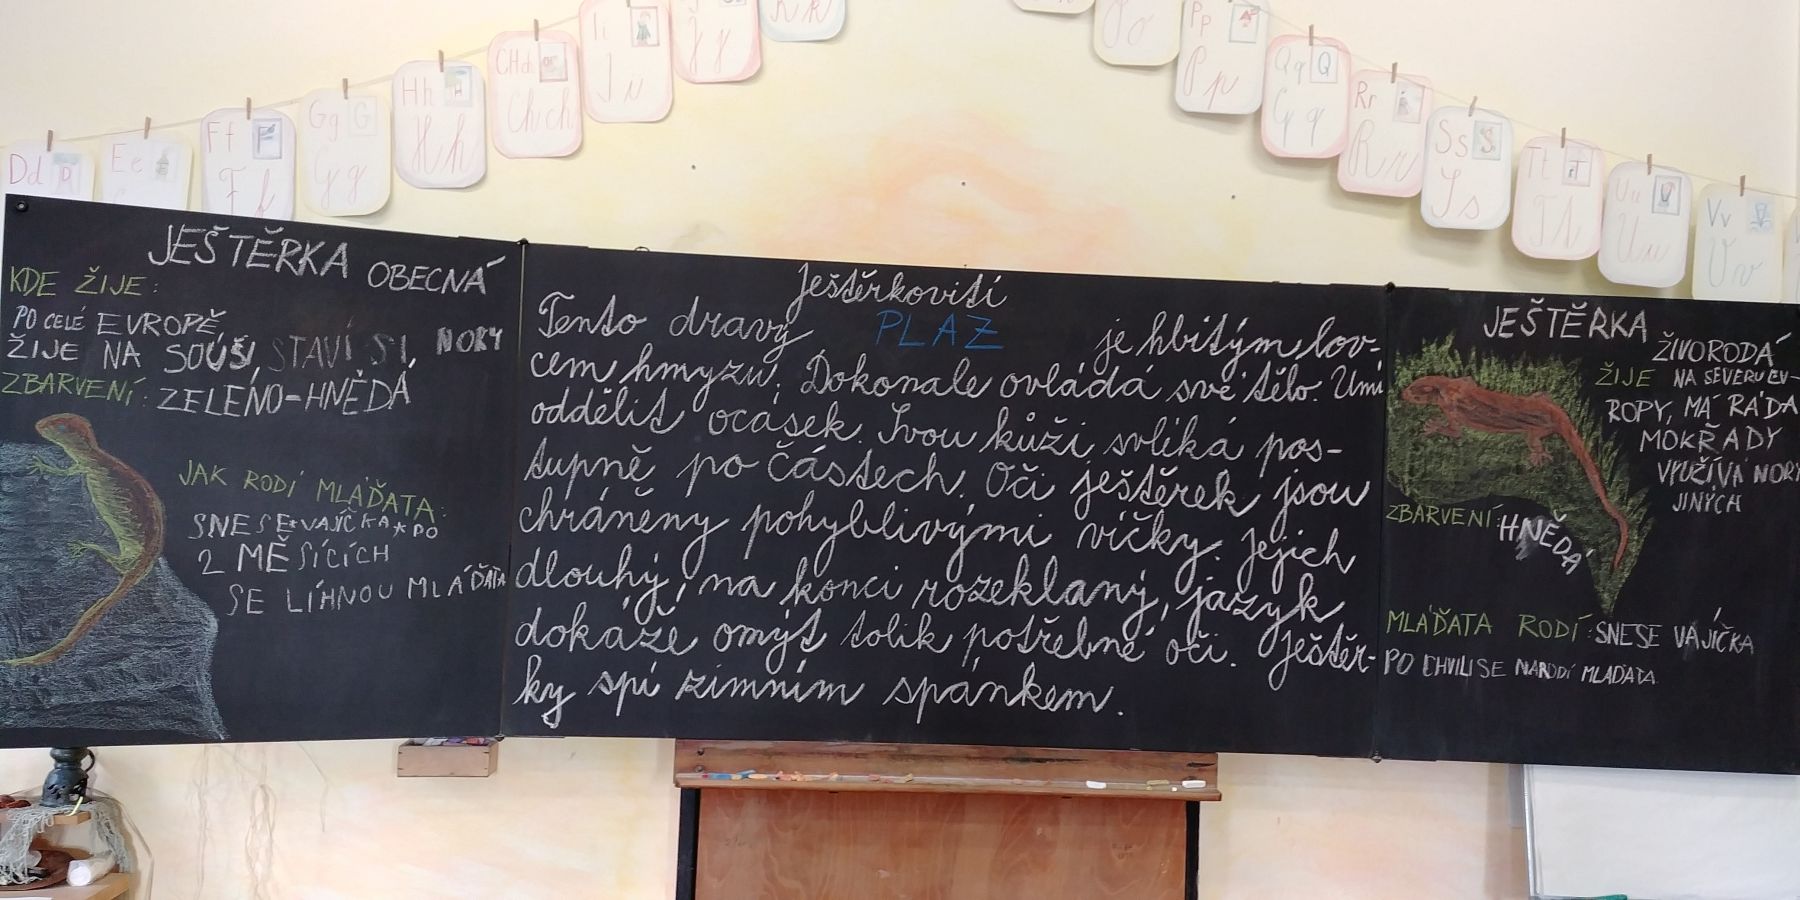 Dd
Ee
Ff F
F f
Gg G
G g
Hh H
H h
CHch CH
Ch ch
Ii
I i
J j
K k
Pp
P p
Qq Q
Q q
Rr R
R r
Ss S
S s
Tt T
T t
Uu U
U u
Vv V
V v
JEŠTĚRKA OBECNÁ
KDE ŽIJE:
PO CELÉ EVROPĚ,
ŽIJE NA SOUŠI, STAVÍ SI NORY
ZBARVENÍ: ZELENO-HNĚDÁ
JAK RODÍ MLÁĎATA:
SNESE*VAJÍČKA*PO
2 MĚSÍCÍCH
SE LÍHNOU MLÁĎATA
Ještěrkovití
Tento dravý PLAZ je hbitým lov-
cem hmyzu. Dokonale ovládá své tělo. Umí
oddělit ocásek. Svou kůži svléká pos-
tupně po částech. Oči ještěrek jsou
chráněny pohyblivými víčky. Jejich
dlouhý, na konci rozeklaný, jazyk
dokáže omýt tolik potřebné oči. Ještěr-
ky spí zimním spánkem.
JEŠTĚRKA
ŽIVORODÁ
ŽIJE NA SEVERU EV-
ROPY, MÁ RÁDA
MOKŘADY
VYUŽÍVÁ NORY
JINÝCH
ZBARVENÍ: HNĚDÁ
MLÁĎATA RODÍ: SNESE VAJÍČKA
PO CHVILI SE NARODÍ MLÁĎATA.